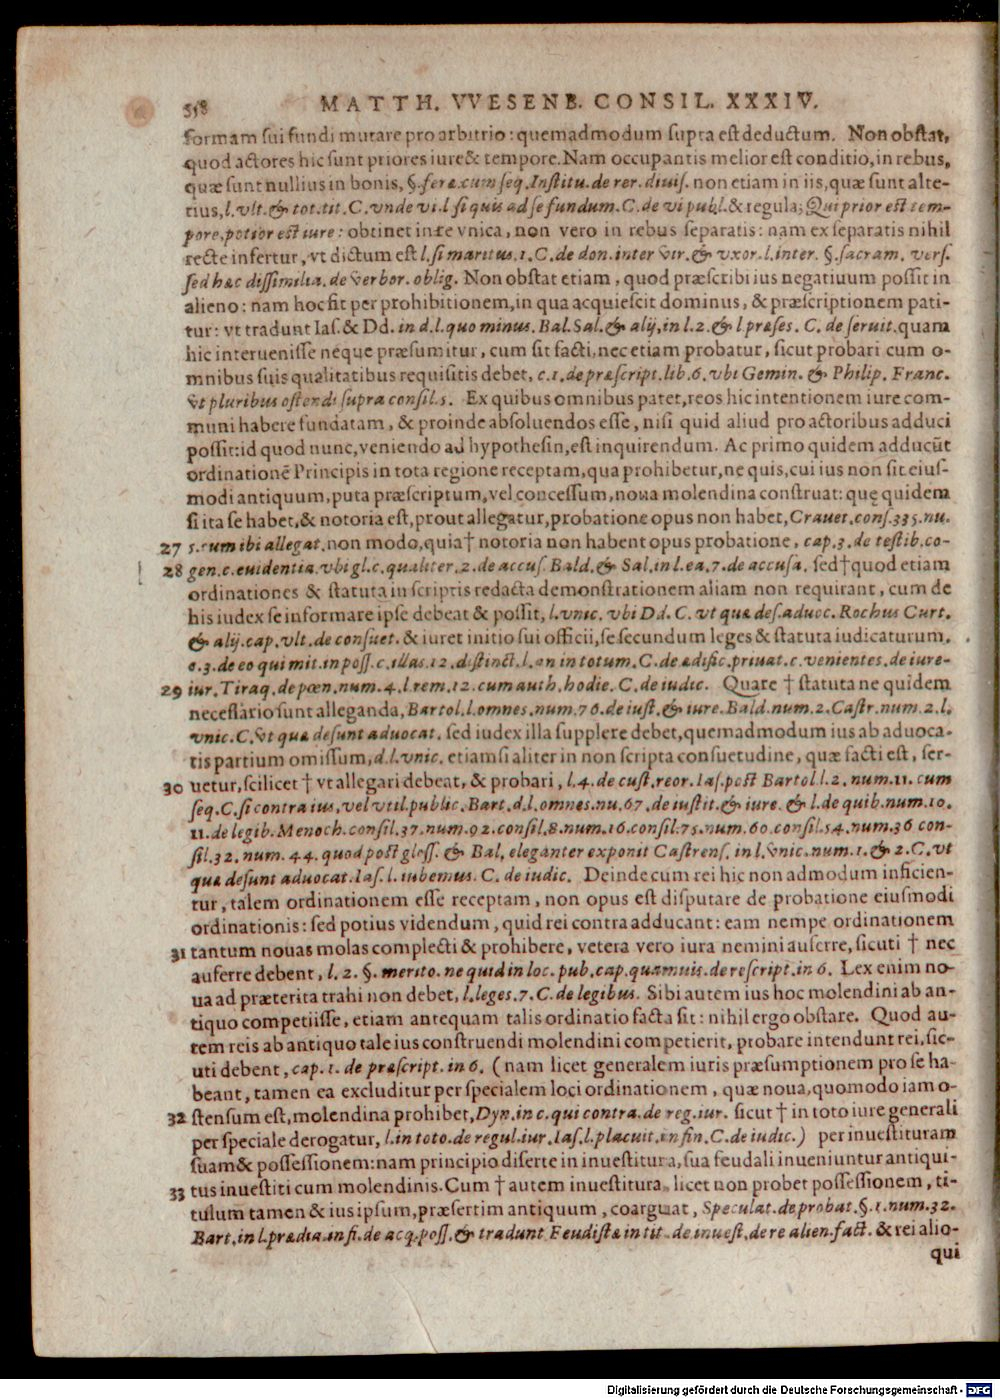 558 MATTH. VVESENB. CONSIL. XXXIV.
formam sui fundi mutare pro arbitrio: quemadmodum supra est deductum. Non obstat,
quod actores hic sunt priores iure & tempore. Nam occupantis melior est conditio, in rebus,
quæ sunt nullius in bonis, §. feræ cum seq. Institu. de rer. diuis. non etiam in iis, quæ sunt alte-
rius, l. vlt. & tot. tit. C. vnde vi. l. si quis ad se fundum. C. de vi publ. & regula; Qui prior est tem-
pore, potior est iure: obtinet in re vnica, non vero in rebus separatis: nam ex separatis nihil
recte infertur, vt dictum est l. si maritus. 1. C. de don. inter vir. & vxor. l. inter. §. sacram. vers.
sed hæc dissimilia. de verbor. oblig. Non obstat etiam, quod præscribi ius negatiuum possit in
alieno: nam hoc fit per prohibitionem, in qua acquiescit dominus, & præscriptionem pati-
tur: vt tradunt Ias. & Dd. in d. l. quo minus. Bal. Sal. & alij, in l. 2. & l. præses. C. de seruit. quam
hic interuenisse neque præsumitur, cum sit facti, nec etiam probatur, sicut probari cum o-
mnibus suis qualitatibus requisitis debet, c. 1. de præscript. lib. 6. vbi Gemin. & Philip. Franc.
vt pluribus ostendi supra consil. 5. Ex quibus omnibus patet, reos hic intentionem iure com-
muni habere fundatam, & proinde absoluendos esse, nisi quid aliud pro actoribus adduci
possit: id quod nunc, veniendo ad hypothesin, est inquirendum. Ac primo quidem adducūt
ordinationē Principis in tota regione receptam, qua prohibetur, ne quis, cui ius non sit eius-
modi antiquum, puta præscriptum, vel concessum, noua molendina construat: quę quidem
si ita se habet, & notoria est, prout allegatur, probatione opus non habet, Crauet. cons. 335. nu.
27 5. cum ibi allegat. non modo, quia † notoria non habent opus probatione, cap. 3. de testib. co-
28 gen. c. euidentia. vbi gl. c. qualiter. 2. de accus. Bald. & Sal. in l. ea. 7. de accusa. sed † quod etiam
ordinationes & statuta in scriptis redacta demonstrationem aliam non requirant, cum de
his iudex se informare ipse debeat & possit, l. vnic. vbi Dd. C. vt quæ des. aduoc. Rochus Curt.
& alij. cap. vlt. de consuet. & iuret initio sui officii, se secundum leges & statuta iudicaturum.
c. 3. de eo qui mit. in poss. c. illas. 12. distinct. l. an in totum. C. de ædific. priuat. c. venientes. de iure-
29 iur. Tiraq. de pœn. num. 4. l. rem. 12. cum auth. hodie. C. de iudic. Quare † statuta ne quidem
necessario sunt alleganda, Bartol. l. omnes. num. 76. de iust. & iure. Bald. num. 2. Castr. num. 2. l.
vnic. C. vt quæ desunt aduocat. sed iudex illa supplere debet, quemadmodum ius ab aduoca-
tis partium omissum, d. l. vnic. etiamsi aliter in non scripta consuetudine, quæ facti est, ser-
30 uetur, scilicet † vt allegari debeat, & probari, l. 4. de cust. reor. Ias. post Bartol. l. 2. num. 11. cum
seq. C. si contra ius, vel vtil. public. Bart. d. l. omnes. nu. 67. de iustit. & iure. & l. de quib. num. 10.
11. de legib. Menoch. consil. 37. num. 92. consil. 8. num. 16. consil. 75. num. 60. consil. 54. num. 36 con-
sil. 32. num. 44. quod post gloss. & Bal. eleganter exponit Castrens. in l. vnic. num. 1. & 2. C. vt
quæ desunt aduocat. Ias. l. iubemus. C. de iudic. Deinde cum rei hic non admodum inficien-
tur, talem ordinationem esse receptam, non opus est disputare de probatione eiusmodi
ordinationis: sed potius videndum, quid rei contra adducant: eam nempe ordinationem
31 tantum nouas molas complecti & prohibere, vetera vero iura nemini auferre, sicuti † nec
auferre debent, l. 2. §. merito. ne quid in loc. pub. cap. quamuis. de rescript. in 6. Lex enim no-
ua ad præterita trahi non debet, l. leges. 7. C. de legibus. Sibi autem ius hoc molendini ab an-
tiquo competiisse, etiam antequam talis ordinatio facta sit: nihil ergo obstare. Quod au-
tem reis ab antiquo tale ius construendi molendini competierit, probare intendunt rei, sic-
uti debent, cap. 1. de præscript. in 6. (nam licet generalem iuris præsumptionem pro se ha-
beant, tamen ea excluditur per specialem loci ordinationem, quæ noua, quomodo iam o-
32 stensum est, molendina prohibet, Dyn. in c. qui contra. de reg. iur. sicut † in toto iure generali
per speciale derogatur, l. in toto. de regul. iur. Ias. l. placuit. in fin. C. de iudic.) per inuestituram
suam & possessionem: nam principio diserte in inuestitura, sua feudali inueniuntur antiqui-
33 tus inuestiti cum molendinis. Cum † autem inuestitura, licet non probet possessionem, ti-
tulum tamen & ius ipsum, præsertim antiquum, coarguat, Speculat. de probat. §. 1. num. 32.
Bart. in l. prædia. in fi. de acq. poss. & tradunt Feudistæ in tit. de inuest. de re alien. fact. & rei alio-
qui
Digitalisierung gefördert durch die Deutsche Forschungsgemeinschaft - DFG